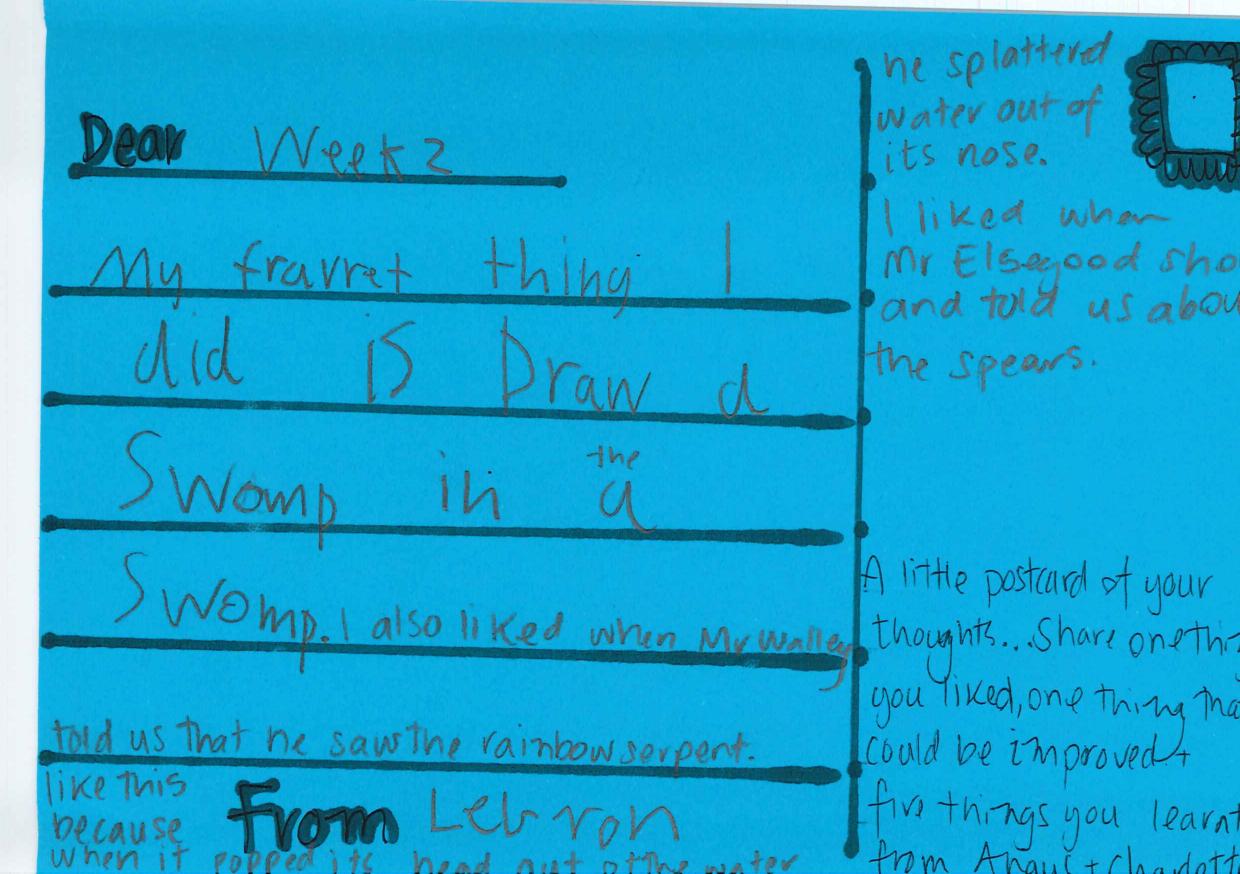 Dear Week 2
My fravret thing I
did is Draw a
Swomp in a
the
Swomp. I also liked when Mr Walley
told us that he saw the rainbow serpent.
like this
because
From Lebron
when it popped its head out of the water
he splattered
water out of
its nose.
I liked when
Mr Elsegood sho
and told us abou
the spears.
A little postcard of your
thoughts... Share one thi
you liked, one thing tha
could be improved +
five things you learnt
from Angus + Charlott